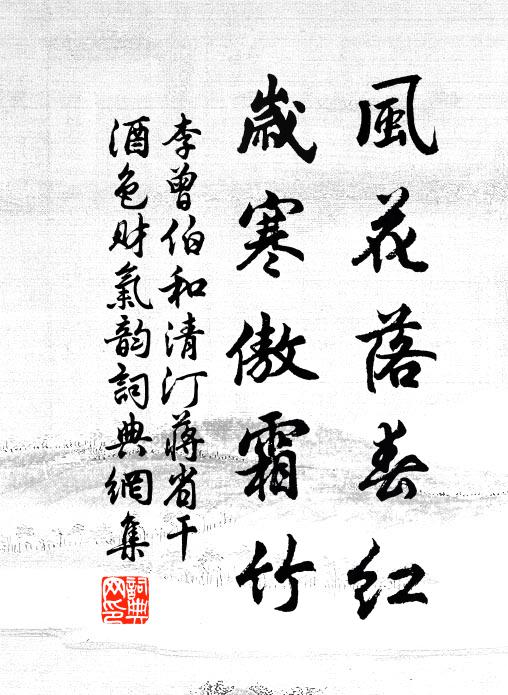 風花落春紅
歲寒傲霜竹
李曾伯和清汀蔣省干
酒色財氣韵詞典網集
詞典網印